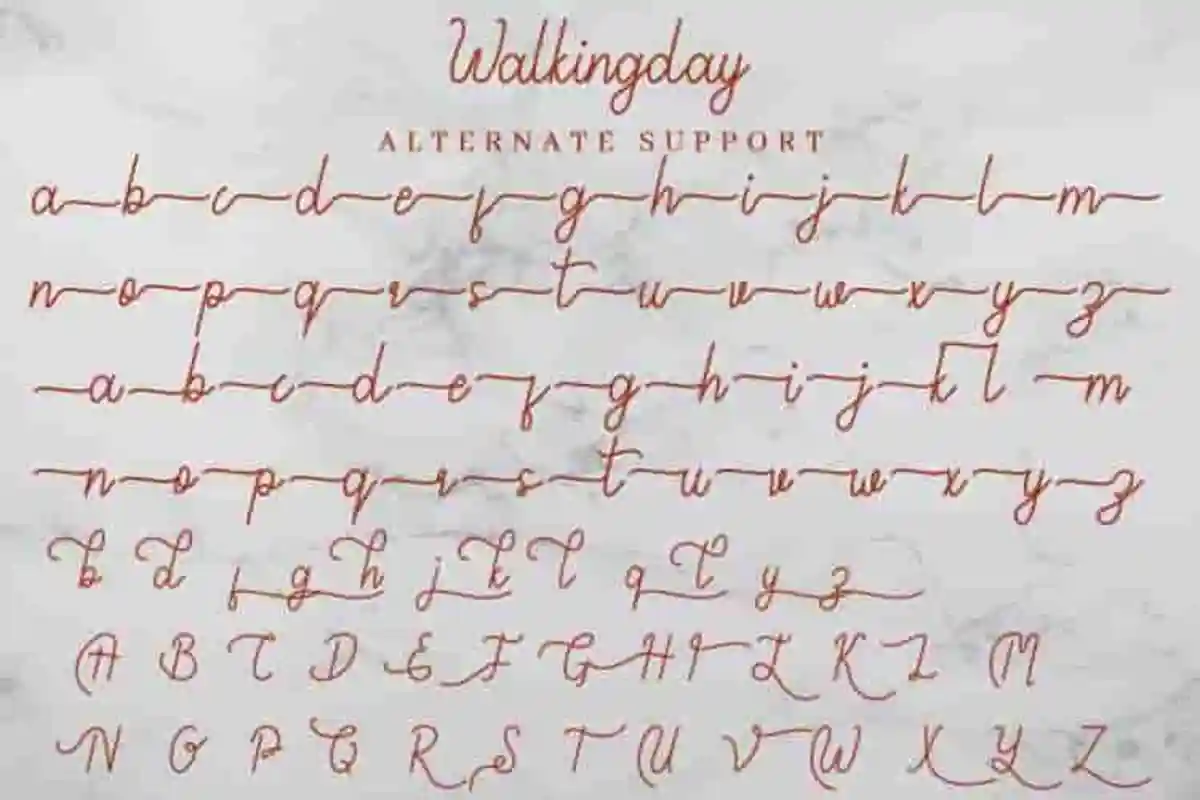 Walkingday
ALTERNATE SUPPORT
a b c d e f g h i j k l m
n o p q r s t u v w x y z
a b c d e f g h i j k l m
n o p q r s t u v w x y z
b d f g h j k l q t y z
A B C D E F G H I J K L M
N O P Q R S T U V W X Y Z